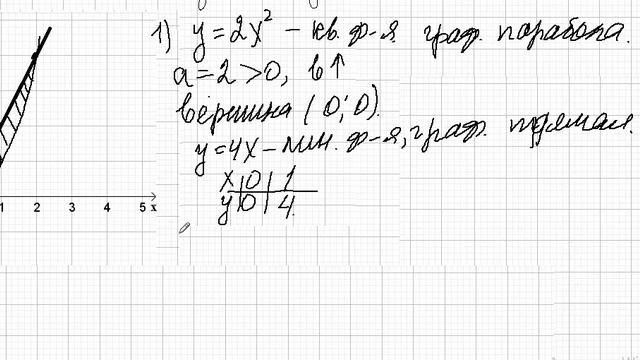 1) y = 2x² – кв. ф-я. граф. парабола.
a = 2 > 0, в ↑
вершина (0; 0).
y = 4x – лин. ф-я, граф. прямая.
x | 0 | 1
y | 0 | 4
1 2 3 4 5 x